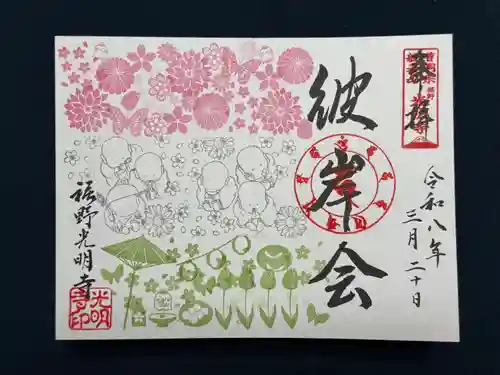 奉拝
令和八年
三月二十日
彼岸会
裾野光明寺
光明
寺印